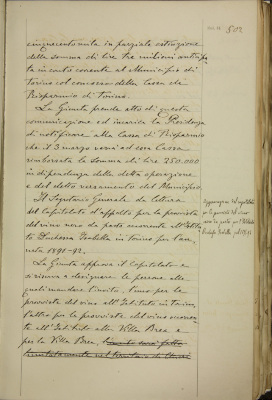 502
cinquecento mila in parziale estinzione
della somma di lire tre milioni anticipa-
ta in conto corrente al Municipio di
Torino col concorso della Cassa di
Risparmio di Torino.
La Giunta prende atto di questa
comunicazione ed incarica la Presidenza
di notificare alla Cassa di Risparmio
che il 3 marzo verrà ad essa Cassa
rimborsata la somma di lire 250.000
in dipendenza della detta operazione
e del detto versamento del Municipio.
Il Segretario Generale dà lettura
del capitolato d'appalto per la provvista
del vino nero da pasto occorrente all'Istitu-
to Duchessa Isabella in Torino per l'an-
nata 1891-92.
La Giunta approva il capitolato e
si riserva a designare le persone alle
quali mandare l'invito, l'uno per la
provvista del vino all'Istituto in Torino,
l'altro per la provvista del vino occorren-
te all'Istituto alla Villa Brea e
per la Villa Brea,
Approvazione del capitolato
per la provvista del vino
nero da pasto per l'Istituto
Duchessa Isabella pel 1891-92